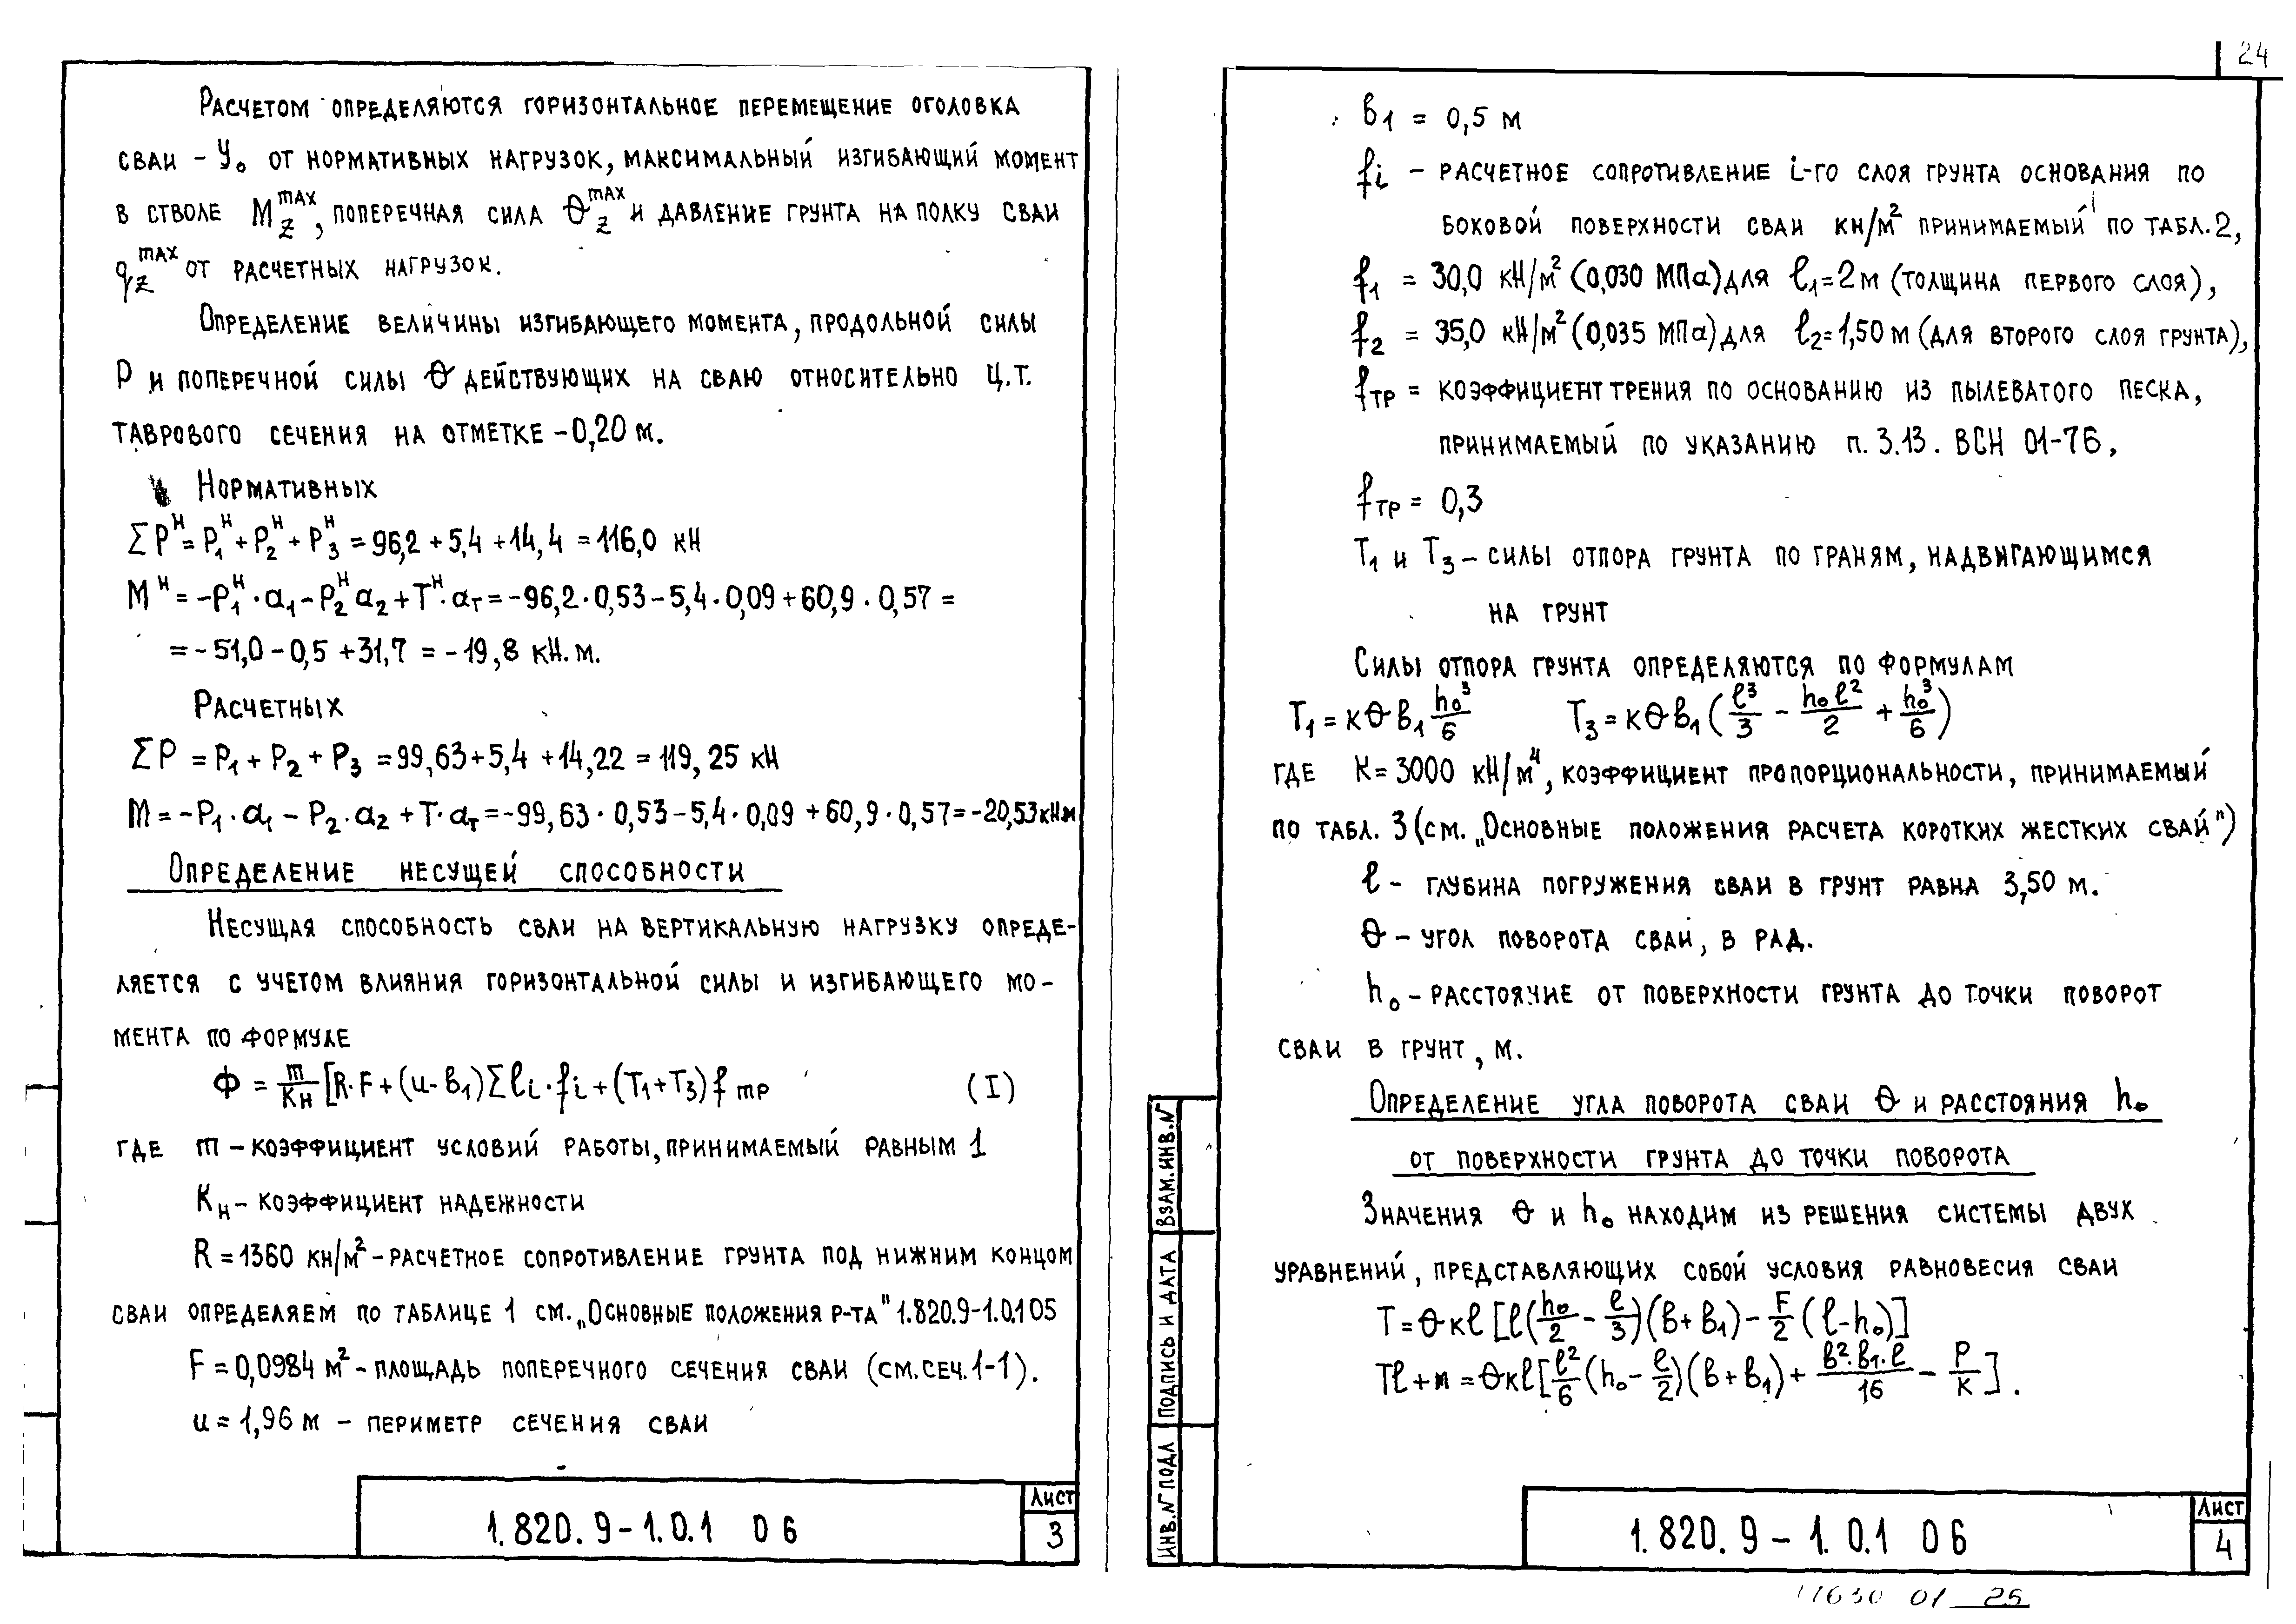 24
Расчетом определяются горизонтальное перемещение оголовка
сваи – У₀ от нормативных нагрузок, максимальный изгибающий момент
в стволе M_z^max, поперечная сила Θ_z^max и давление грунта на полку сваи
q_z^max от расчетных нагрузок.
Определение величины изгибающего момента, продольной силы
Р и поперечной силы Θ действующих на сваю относительно ц.т.
таврового сечения на отметке –0,20 м.
Нормативных
ΣPᴴ = P₁ᴴ + P₂ᴴ + P₃ᴴ = 96,2 + 5,4 + 14,4 = 116,0 кН
Mᴴ = –P₁ᴴ·a₁ – P₂ᴴ a₂ + Tᴴ·aт = –96,2·0,53 – 5,4·0,09 + 60,9·0,57 =
= –51,0 – 0,5 + 31,7 = –19,8 кН.м.
Расчетных
ΣP = P₁ + P₂ + P₃ = 99,63 + 5,4 + 14,22 = 119,25 кН
M = –P₁·a₁ – P₂·a₂ + T·aт = –99,63·0,53 – 5,4·0,09 + 60,9·0,57 = –20,53 кНм
Определение несущей способности
Несущая способность сваи на вертикальную нагрузку опреде-
ляется с учетом влияния горизонтальной силы и изгибающего мо-
мента по формуле
Ф = m/Kн [R·F + (u-в₁)Σℓi·fi + (T₁+T₃)f тр (I)
где m – коэффициент условий работы, принимаемый равным 1
Kн – коэффициент надежности
R = 1360 кн/м² – расчетное сопротивление грунта под нижним концом
сваи определяем по таблице 1 см. „Основные положения р-та" 1.820.9-1.0.1 05
F = 0,0984 м² – площадь поперечного сечения сваи (см. сеч. 1-1).
u = 1,96 м – периметр сечения сваи
1.820.9-1.0.1 06
Лист
3
в₁ = 0,5 м
fi – расчетное сопротивление i-го слоя грунта основания по
боковой поверхности сваи кн/м² принимаемый по табл. 2,
f₁ = 30,0 кН/м² (0,030 МПа) для ℓ₁ = 2 м (толщина первого слоя),
f₂ = 35,0 кН/м² (0,035 МПа) для ℓ₂ = 1,50 м (для второго слоя грунта),
fтр = коэффициент трения по основанию из пылеватого песка,
принимаемый по указанию п. 3.13. ВСН 01-76,
fтр = 0,3
T₁ и T₃ – силы отпора грунта по граням, надвигающимся
на грунт
Силы отпора грунта определяются по формулам
T₁ = кΘв₁ h₀³/6 T₃ = кΘв₁(ℓ³/3 – h₀ℓ²/2 + h₀³/6)
где К = 3000 кН/м⁴, коэффициент пропорциональности, принимаемый
по табл. 3 (см. „Основные положения расчета коротких жестких свай")
ℓ – глубина погружения сваи в грунт равна 3,50 м.
Θ – угол поворота сваи, в рад.
h₀ – расстояние от поверхности грунта до точки поворот
сваи в грунт, м.
Определение угла поворота сваи Θ и расстояния h₀
от поверхности грунта до точки поворота
Значения Θ и h₀ находим из решения системы двух
уравнений, представляющих собой условия равновесия сваи
T = Θкℓ[ℓ(h₀/2 – ℓ/3)(в+в₁) – F/2 (ℓ-h₀)]
Tℓ + м = Θкℓ[ℓ²/6 (h₀ – ℓ/2)(в+в₁) + в²·в₁·ℓ/16 – P/K].
Взам. инв. №
Подпись и дата
Инв. № подл
1.820.9 – 1.0.1 06
Лист
4
17630 01 25